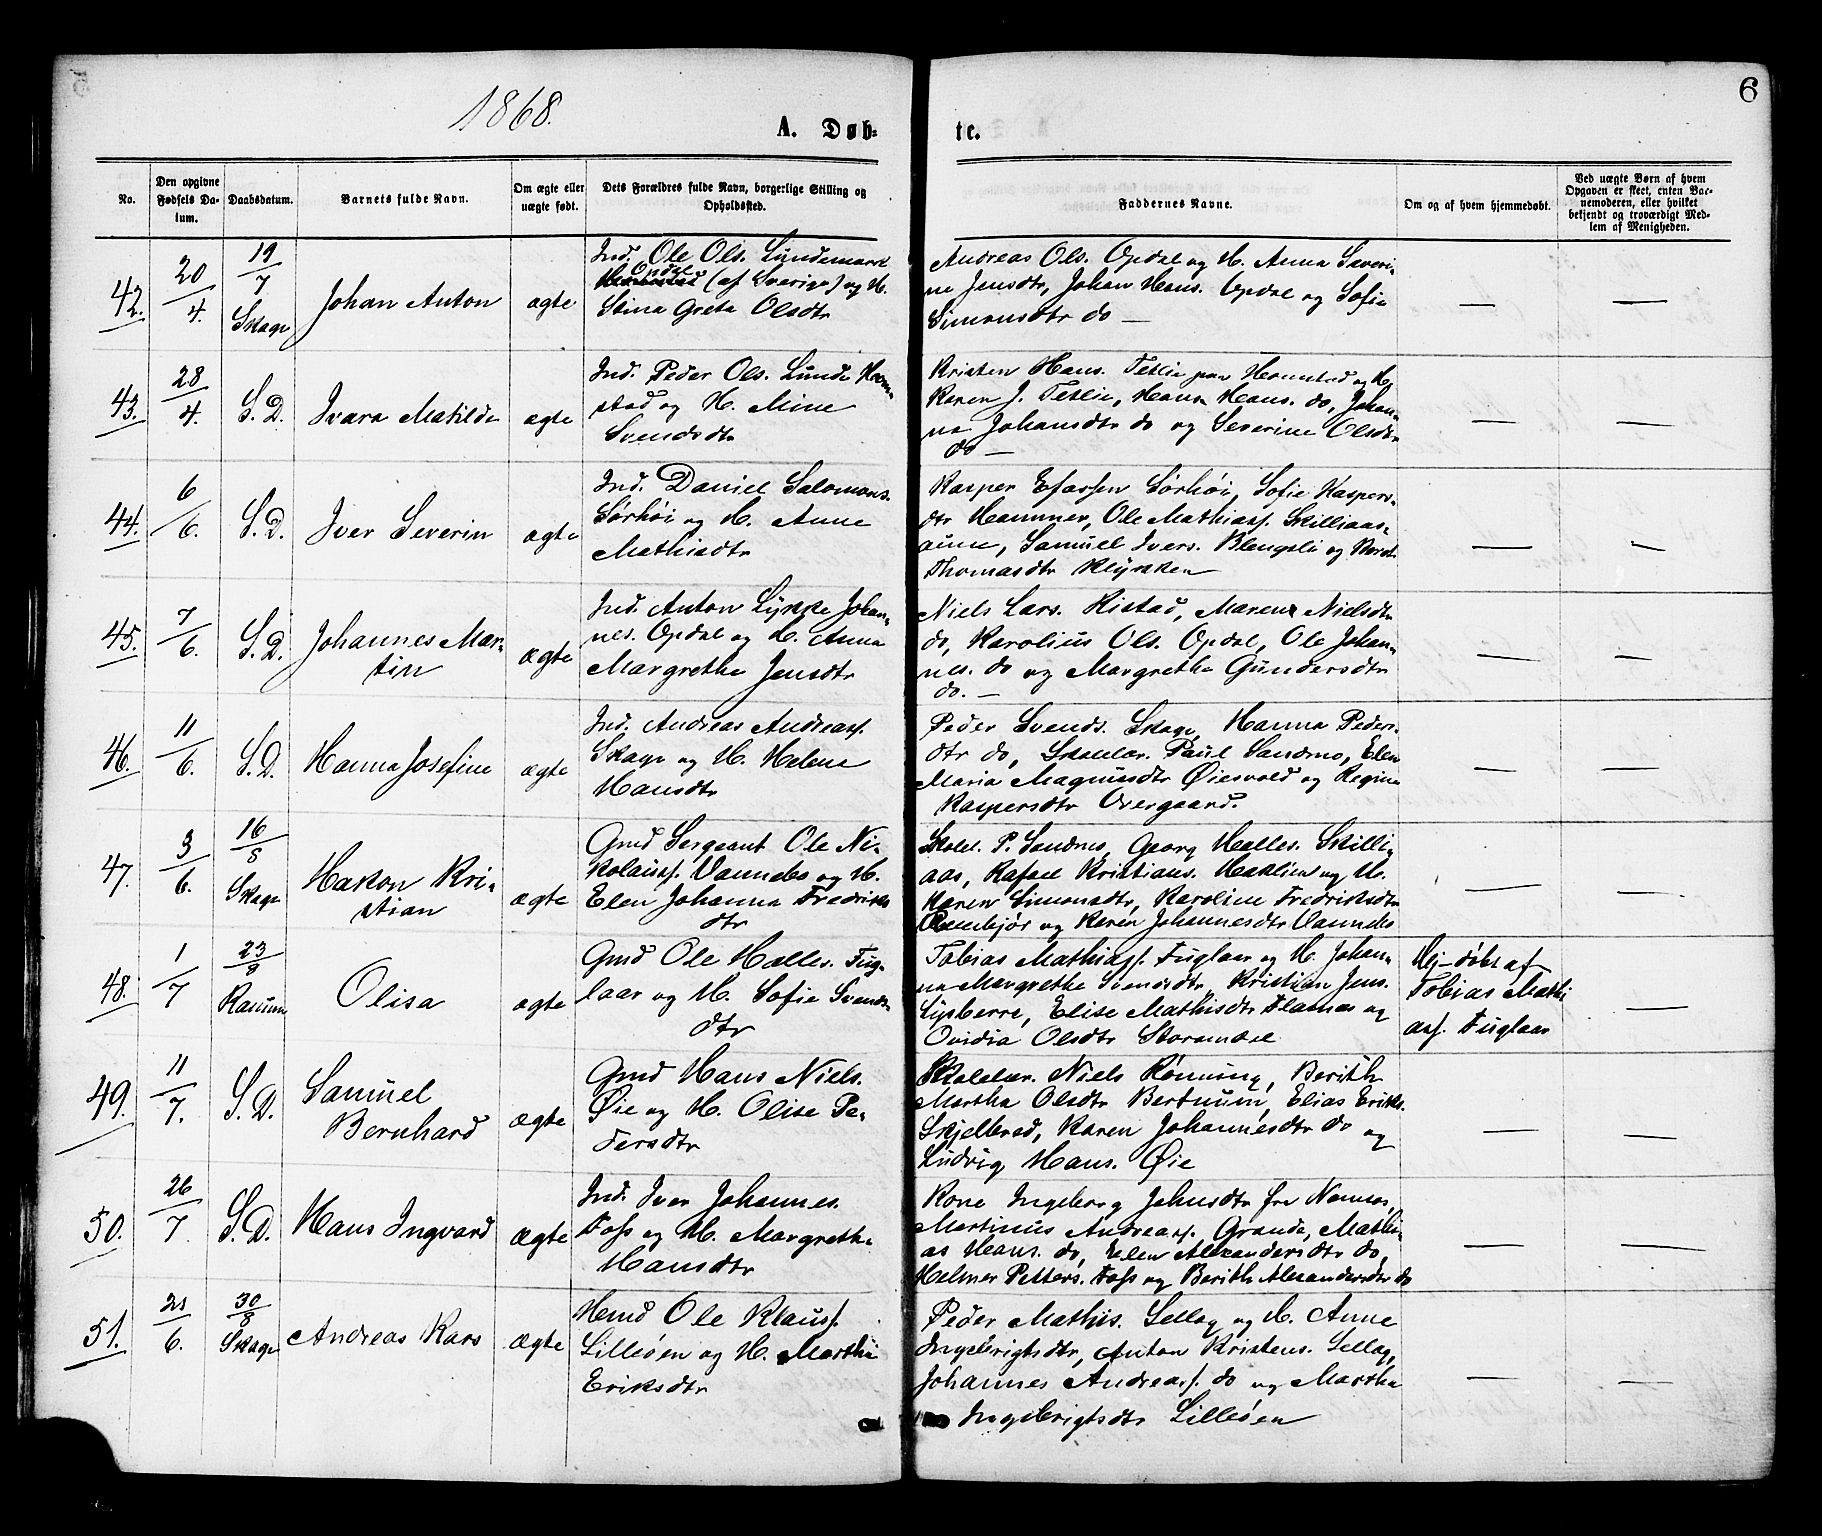 1868.
A. Døb-
te.
6
No.
Den opgivne
Fødsels Da-
tum.
Daabsdatum.
Barnets fulde Navn.
Om ægte eller
uægte født.
Dets Forældres fulde Navn, borgerlige Stilling og
Opholdssted.
Faddernes Navne.
Om og af hvem hjemmedøbt.
Ved uægte Børn af hvem
Opgaven er skeet, enten Bar-
nemoderen, eller hvilket
bekjendt og troværdigt Med-
lem af Menigheden.
42.
20/4.
19/7
Skage
Johan Anton
ægte
Ind. Ole Ols. Lundemark
Opdal (af Sverige) og H.
Stina Greta Olsdtr
Andreas Ols. Opdal og H. Anna Severi-
ne Jensdtr, Johan Hans. Opdal og Sofie
Simonsdtr do —
—
—
43.
28/4.
S. D.
Ivara Matilde
ægte
Ind. Peder Ols. Lunde Hom-
stad og H. Mine
Svendsdtr
Kristen Hans. Teslie paa Homstad og H.
Karen J. Teslie, Hans Hans. do, Johan-
na Johansdtr do og Severine Olsdtr
do —
—
—
44.
6/6.
S. D.
Iver Severin
ægte
Ind. Daniel Salomons.
Sørhøi og H. Anne
Mathisdtr
Kasper Esassen Sørhøi, Sofie Kaspers-
dtr Hammer, Ole Mathiass. Skilliaas-
aune, Samuel Ivers. Blengsli og
Thomasdtr Klykken
—
—
45.
7/6.
S. D.
Johannes Mar-
tin
ægte
Ind. Anton Lykke Johan-
nes. Opdal og H. Anna
Margrethe Jensdtr
Niels Lars. Ristad, Maren Nielsdtr
do, Karolius Ols. Opdal, Ole Johan-
nes. do og Margrethe Gundersdtr
do. —
—
—
46.
11/6.
S. D.
Hanna Josefine
ægte
Ind. Andreas Andreass.
Skage og H. Helene
Hansdtr
Peder Svends. Skage, Hanna Peders-
dtr do, Skolelær. Paul Sandmo, Elen
Maria Magnusdtr Øiesvold og Regine
Kaspersdtr Overgaard.
—
—
47.
3/6.
16/8
Skage
Hakon Kri-
stian
ægte
Gmd Sergeant Ole Ni-
kolaiss. Vannebo og H.
Elen Johanna Fredriks
dtr
Skolel. P. Sandmo, Georg Helles. Skilli-
aas, Rafael Kristians. Heklien og H.
Karen Simonsdtr, Karoline Fredriksdtr
og Karen Johannesdtr Vannebo
—
48.
1/7
23/8
Ranum
Olisa
ægte
Gmd Ole Helles. Fug-
laar og H. Sofie Svends-
dtr
Tobias Mathiass. Fuglaar og H. Johan-
na Margrethe Svendsdtr, Kristian Jens.
Lysberre, Elise Mathisdtr Flasnes og
Ovidia Olsdtr Storemoel
Hj-døbt af
Tobias Mathi
ass. Fuglaar
—
49.
11/7.
S. D.
Samuel
Bernhard
ægte
Gmd Hans Niels.
Øie og H. Olise Pe-
dersdtr
Skolelær. Niels Rønning, Berith
Martha Olsdtr Bertnum, Elias Eriks.
Skjelbred, Karen Johannesdtr do og
Ludvig Hans. Øie
—
—
50.
26/7
S. D.
Hans Ingvard
ægte
Ind. Iver Johannes.
Foss og H. Margrethe
Hansdtr
Kone Ingeborg Johnsdtr fra Namsos,
Martinus Andreass. Grande, Mathi-
as Hans. do, Elen Alexandersdtr do,
Helmer Petters. Foss og Berith Alexandersdtr do
—
—
51.
21/6.
30/8
Skage
Andreas Kars
ægte
Hmd Ole Klauss.
Lilleøen og H. Martha
Eriksdtr
Peder Mathis. Sellæg og H. Anne
Ingebrigtsdtr, Anton Kristens. Sellæg,
Johannes Andreass. do og Martha
Ingebrigtsdtr Lilleøen
—
—